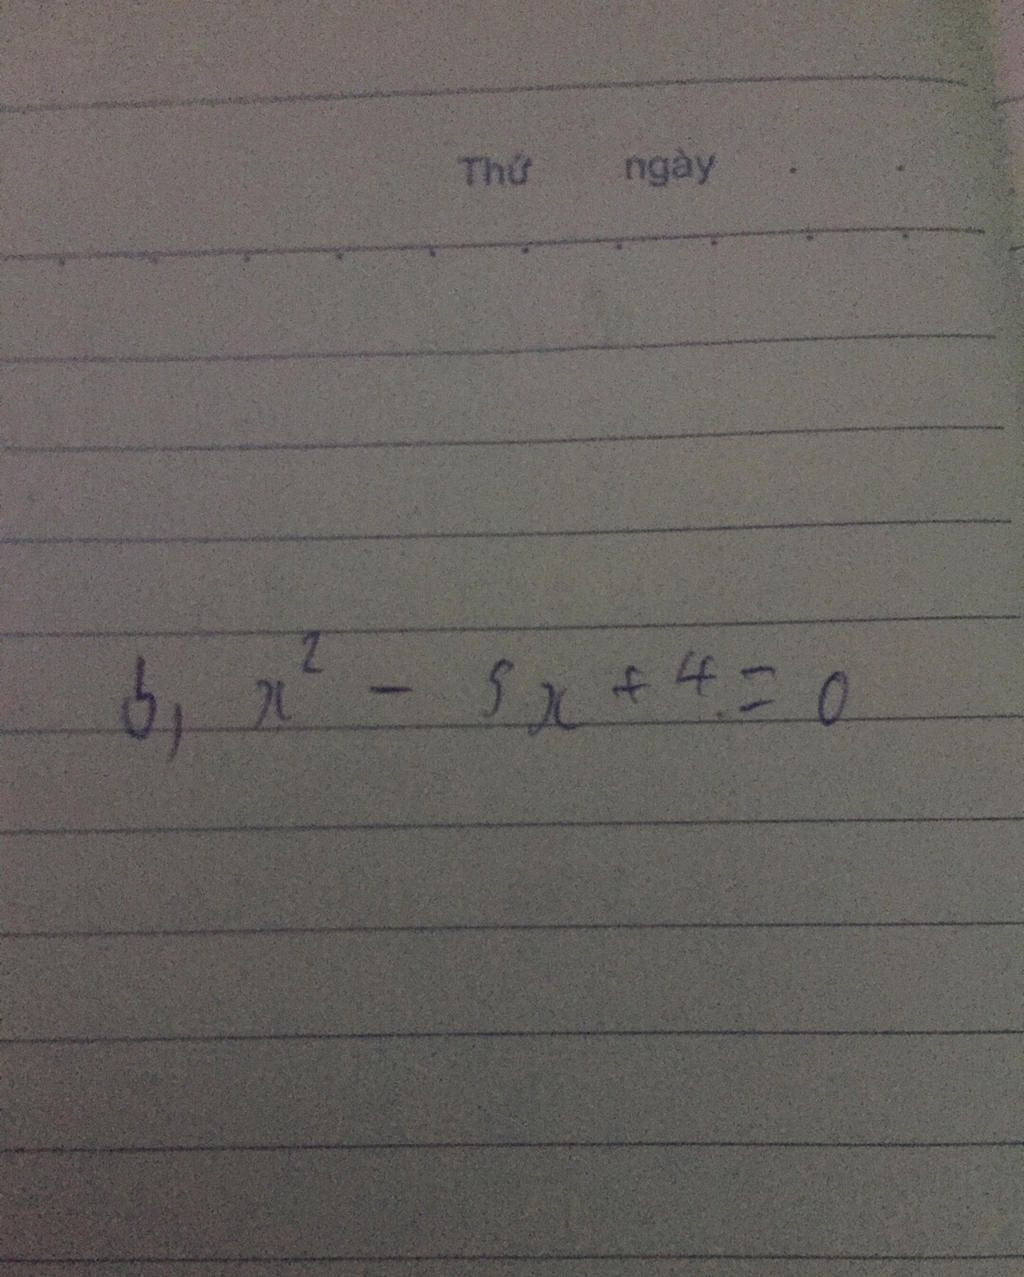 Thứ ngày
b, x² - 5x + 4 = 0